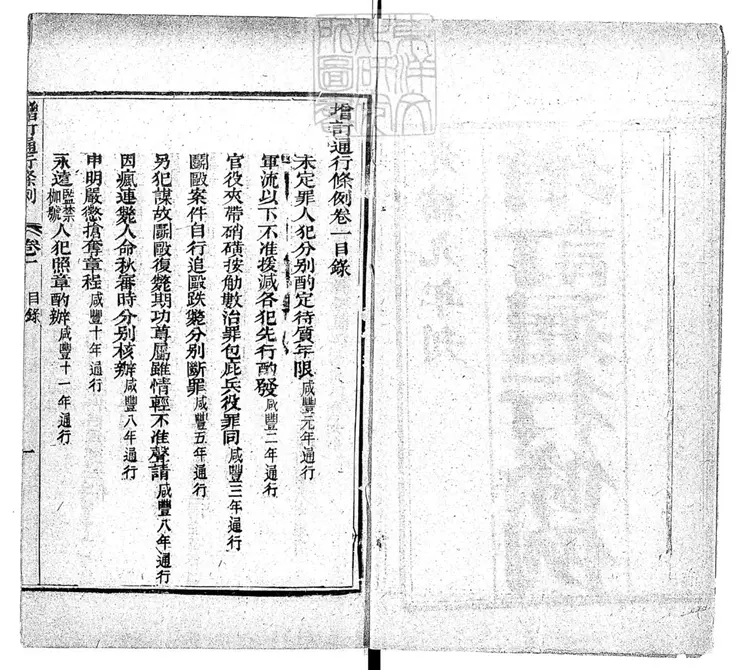 增訂通行條例卷一目錄
未定罪人犯分别酌定待質年限咸豐元年通行
軍流以下不准援減各犯先行酌發咸豐二年通行
官役夾帶硝磺按觔數治罪包庇兵役罪同咸豐三年通行
鬬毆案件自行追毆跌斃分别斷罪咸豐五年通行
另犯謀故鬬毆復斃期功尊屬雖情輕不准聲請咸豐八年通行
因瘋連斃人命秋審時分别核辦咸豐八年通行
申明嚴懲搶奪章程咸豐十年通行
永遠監禁枷號人犯照章酌辦咸豐十一年通行
增訂通行條例 卷一 目錄 一